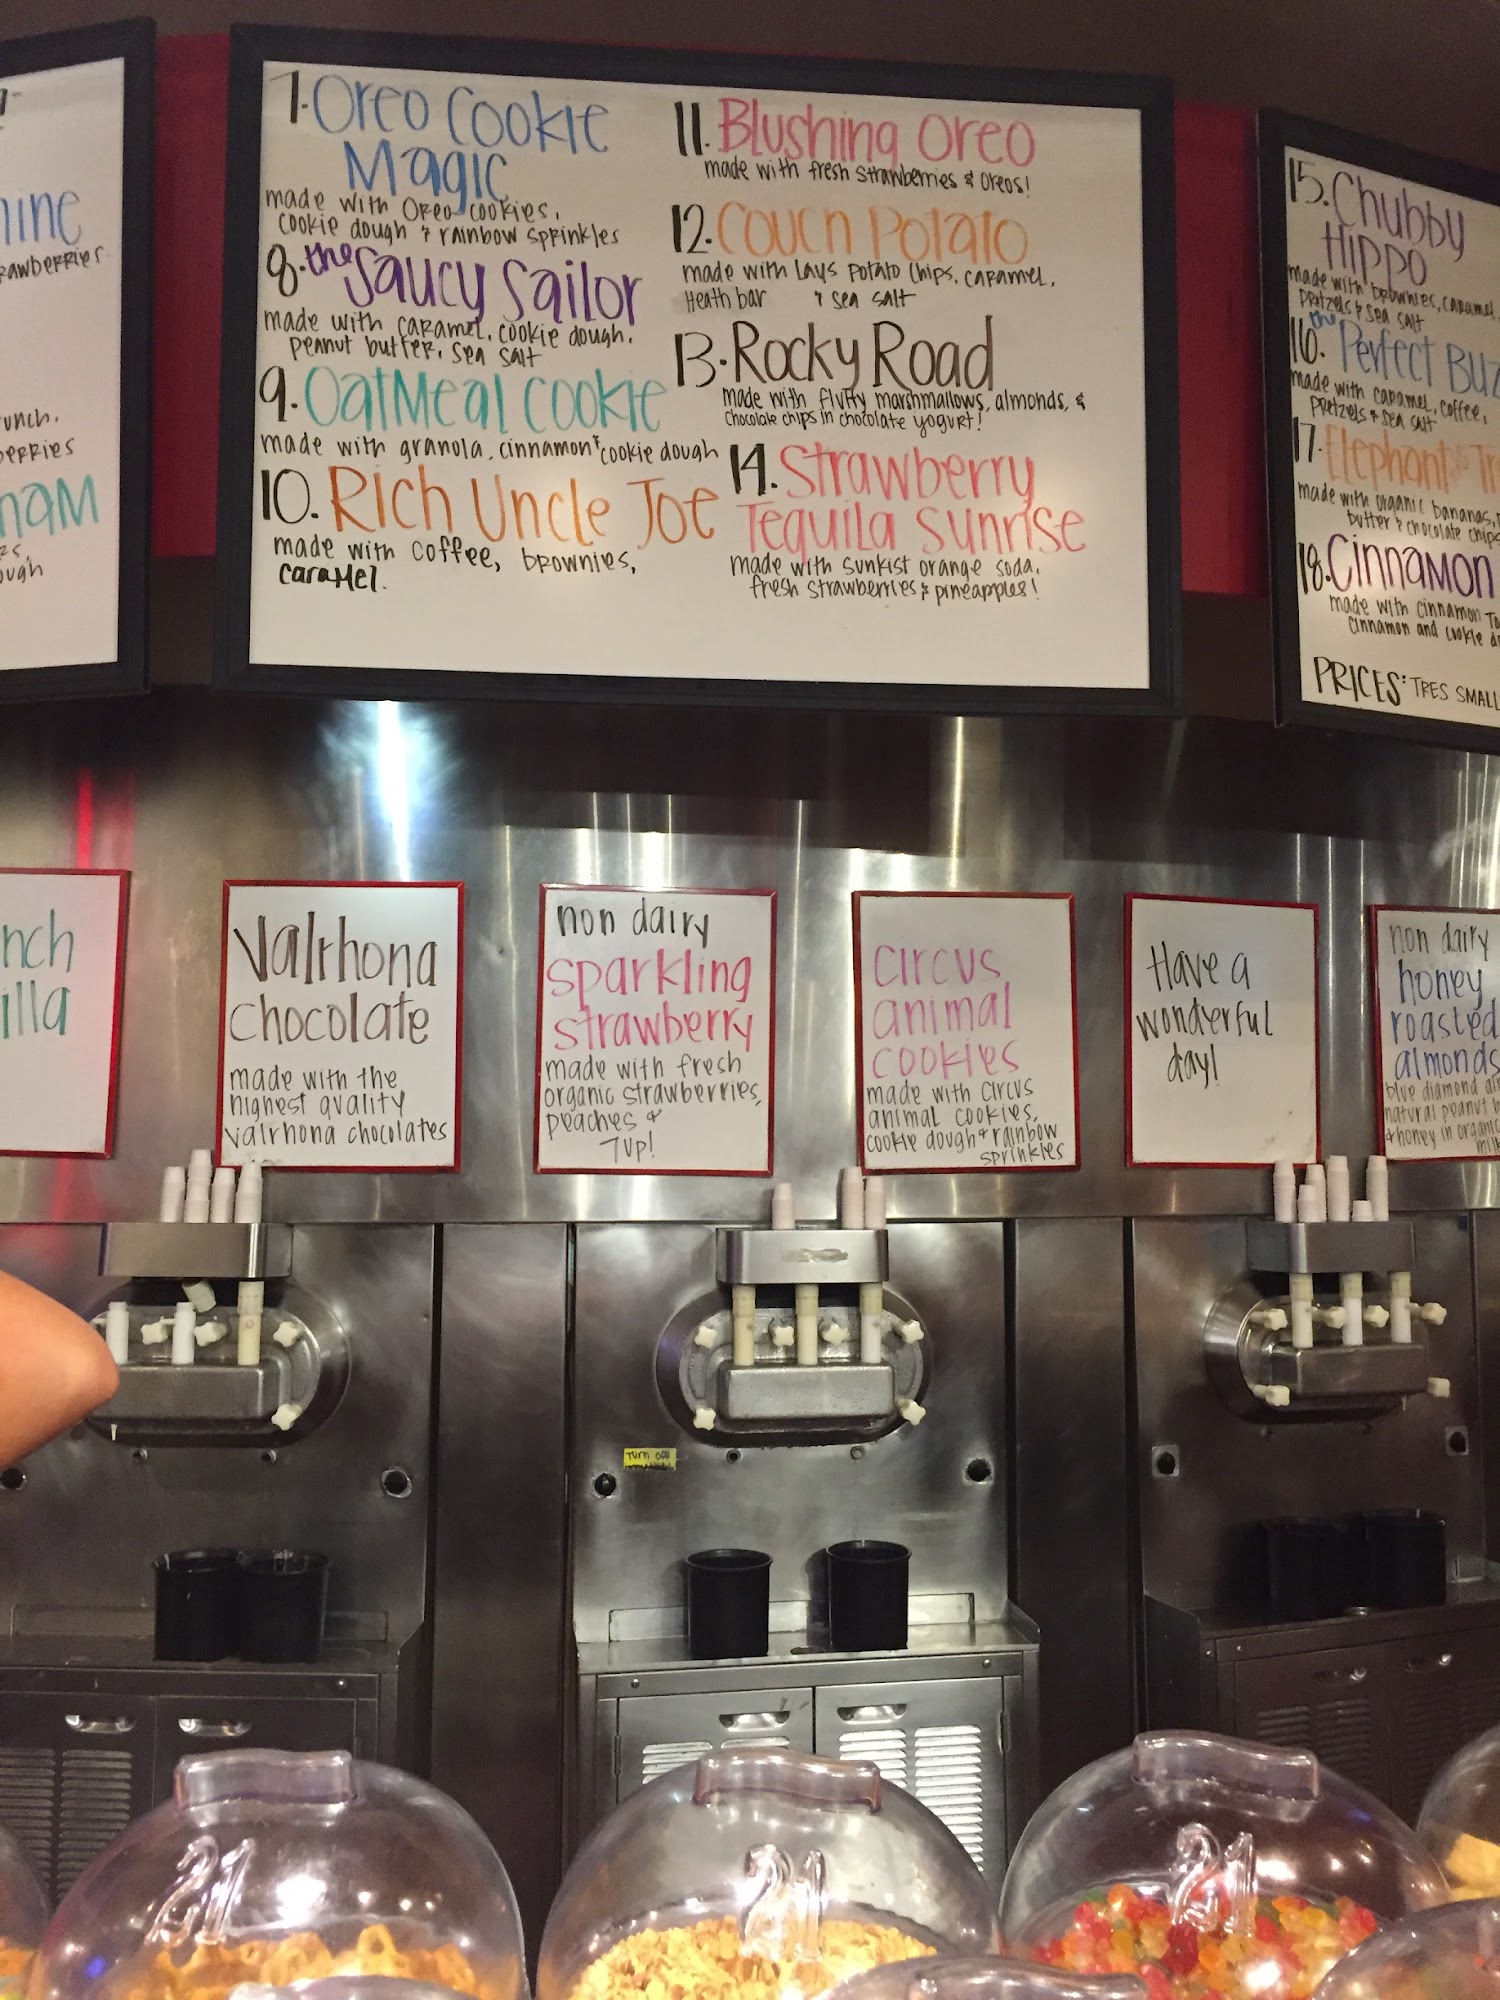 berries
7. Oreo Cookie
Magic
made with Oreo cookies,
cookie dough & rainbow sprinkles
8. the Saucy Sailor
made with caramel, cookie dough,
peanut butter, sea salt
9. Oatmeal Cookie
made with granola, cinnamon & cookie dough
10. Rich Uncle Joe
made with coffee, brownies,
caramel.
11. Blushing Oreo
made with fresh strawberries & oreos!
12. Couch Potato
made with Lays potato chips, caramel,
Heath bar & sea salt
13. Rocky Road
made with fluffy marshmallows, almonds, &
chocolate chips in chocolate yogurt!
14. Strawberry
Tequila Sunrise
made with sunkist orange soda,
fresh strawberries & pineapples!
15. Chubby
Hippo
made with brownies, caramel,
pretzels & sea salt
16. the Perfect
made with caramel, coffee,
pretzels & sea salt
17. Elephant
made with organic bananas,
butter & chocolate chips
18. Cinnamon
made with cinnamon
cinnamon and cookie
PRICES: TRES SMALL
Valrhona
chocolate
made with the
highest quality
valrhona chocolates
non dairy
sparkling
strawberry
made with fresh
organic strawberries,
peaches &
7up!
circus
animal
cookies
made with circus
animal cookies,
cookie dough & rainbow
sprinkles
Have a
wonderful
day!
non dairy
honey
roasted
almonds
blue diamond
natural peanut
& honey in organic
Turn off
21
21
21